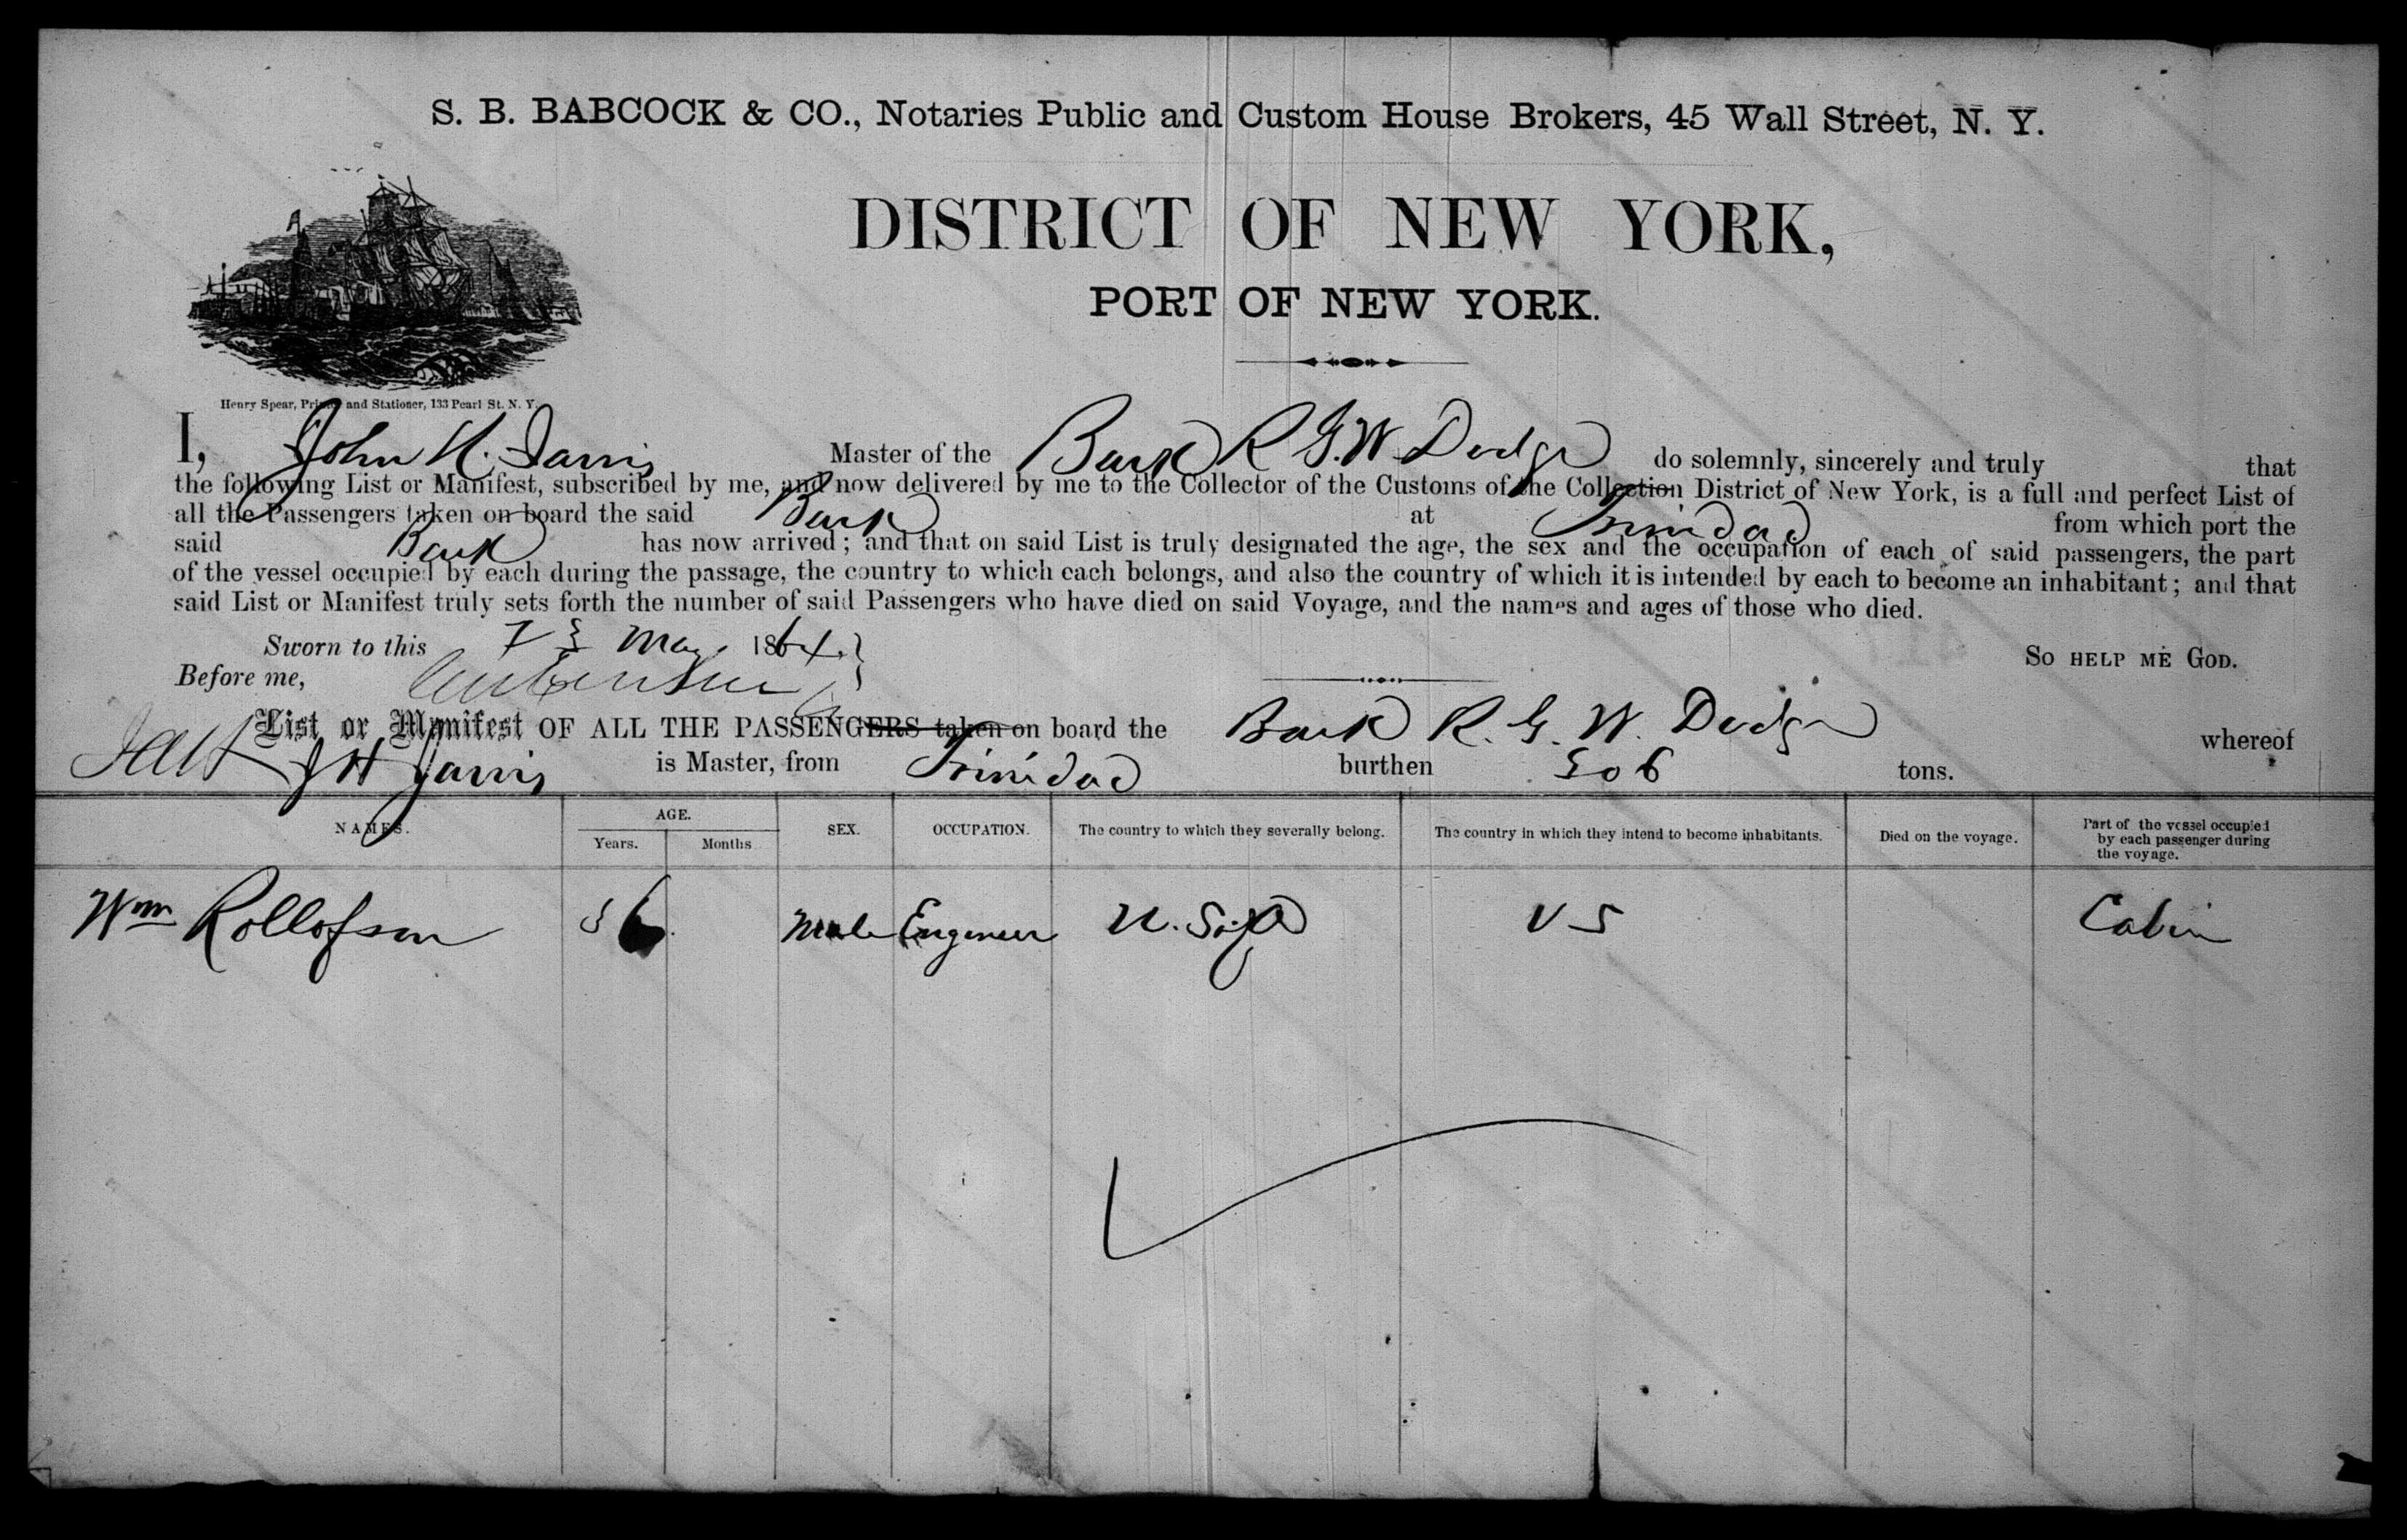 S. B. BABCOCK & CO., Notaries Public and Custom House Brokers, 45 Wall Street, N. Y.
DISTRICT OF NEW YORK,
PORT OF NEW YORK.
Henry Spear, Printer and Stationer, 133 Pearl St. N. Y.
I, John H. Jarvis Master of the Bark R G. W. Dodge do solemnly, sincerely and truly that
the following List or Manifest, subscribed by me, and now delivered by me to the Collector of the Customs of the Collection District of New York, is a full and perfect List of
all the Passengers taken on board the said Bark at Trinidad from which port the
said Bark has now arrived; and that on said List is truly designated the age, the sex and the occupation of each of said passengers, the part
of the vessel occupied by each during the passage, the country to which each belongs, and also the country of which it is intended by each to become an inhabitant; and that
said List or Manifest truly sets forth the number of said Passengers who have died on said Voyage, and the names and ages of those who died.
Sworn to this 7 May 1864. SO HELP ME GOD.
Before me,
List or Manifest OF ALL THE PASSENGERS taken on board the Bark R. G. W. Dodge whereof
J H Jarvis is Master, from Trinidad burthen 306 tons.
NAMES. AGE. Years. Months SEX. OCCUPATION. The country to which they severally belong. The country in which they intend to become inhabitants. Died on the voyage. Part of the vessel occupied by each passenger during the voyage.
Wm Rollofson Male Engineer U. S. A U S Cabin